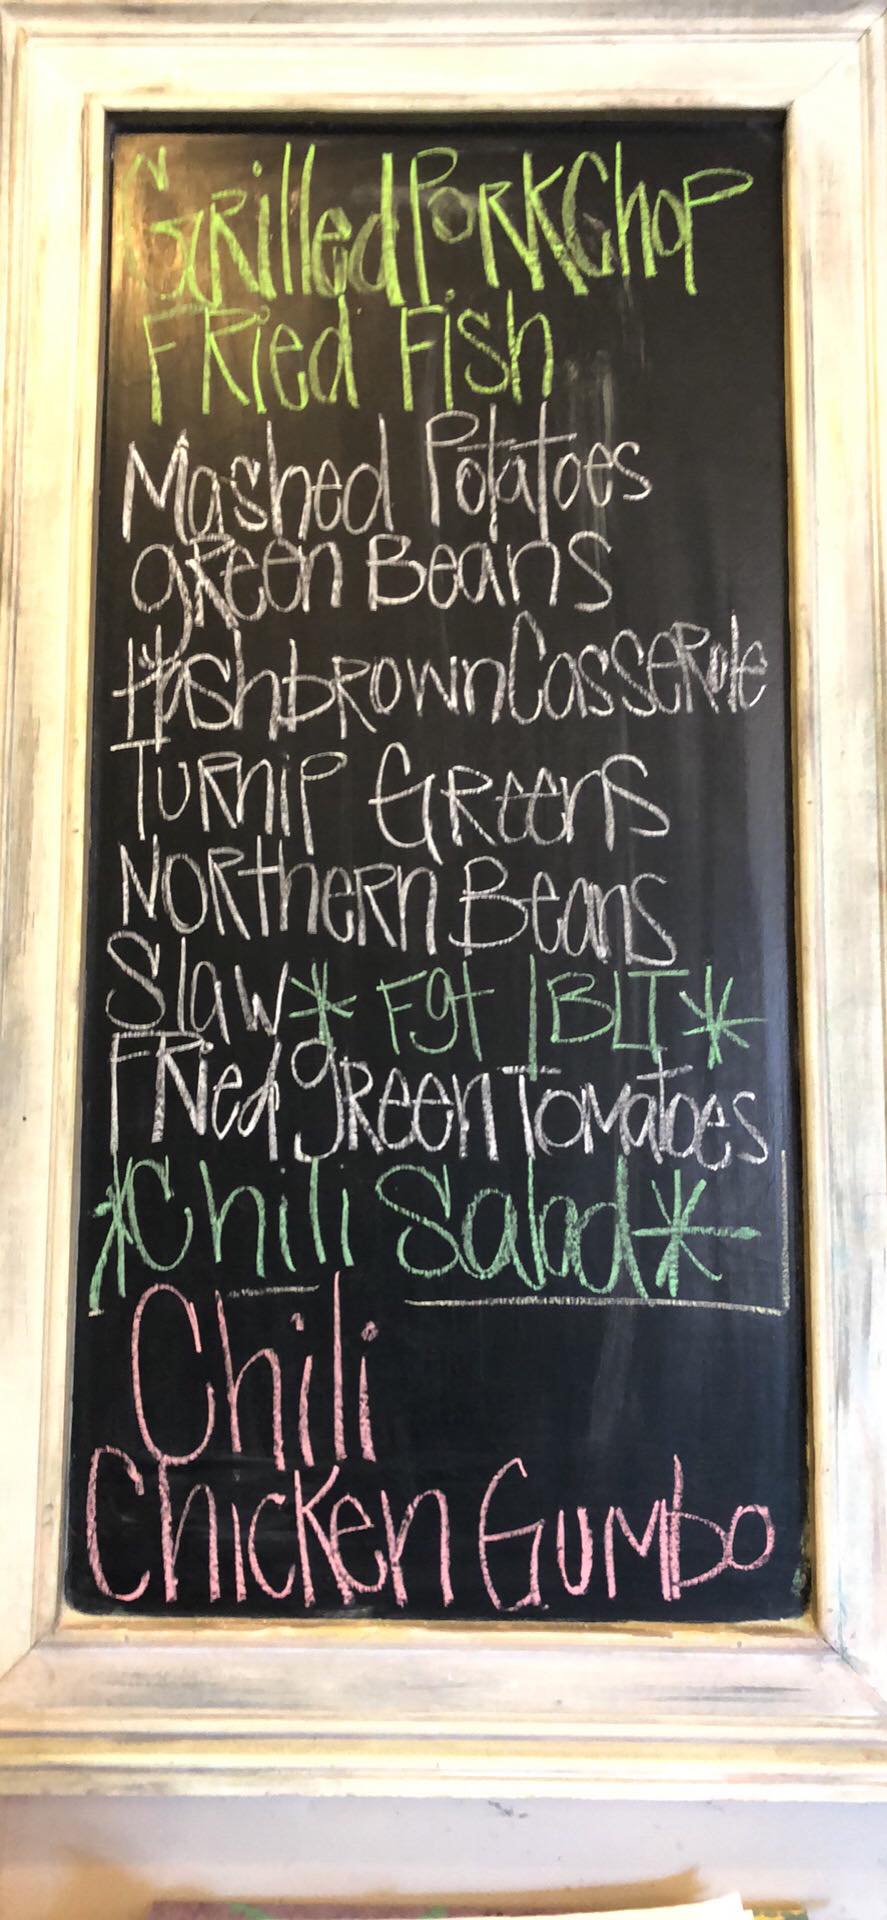 Grilled Pork Chop
Fried Fish
Mashed Potatoes
green Beans
Hashbrown Casserole
Turnip Greens
Northern Beans
Slaw * Fgt | BLT *
Fried green Tomatoes
* Chili Salad *
Chili
Chicken Gumbo